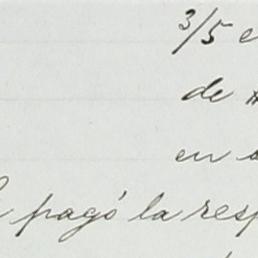 3/5
de
en
pagó la resp